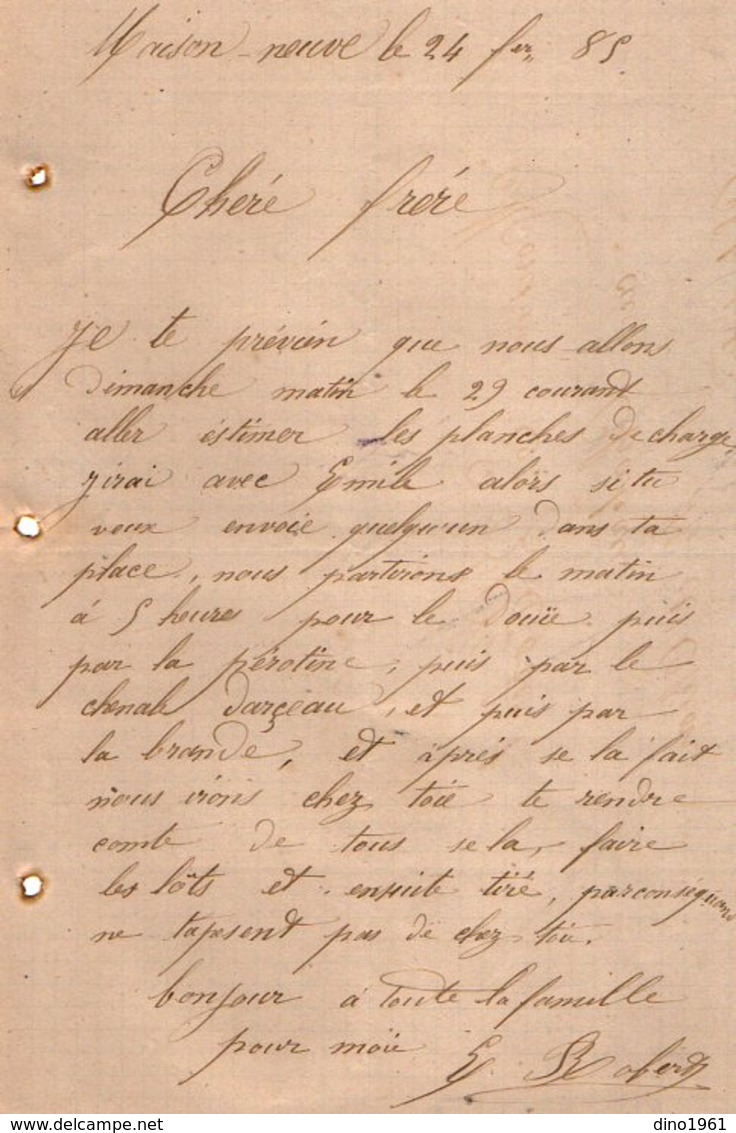 Maison-neuve le 24 fer 85
Cheré freré
Je te prévien que nous allons
Dimanche matin le 29 courant
aller éstimer les planches decharge,
jirai avec Emile aloïs situ
veux envoie quelqu'un dans ta
place, nous partirons le matin
à 5 heures pour le Douïe puis
par la pérotine, puis par le
chenale d'arçeau, et puis par
la brande, et aprés se la fait
nous irons chez toie te rendre
comte de tous sela, faire
les lôts et ensuite tiré, parconséquand
ne tapesent pas de chez toi.
bonjour a toute la famille
pour moïe E. Robert
dino1961